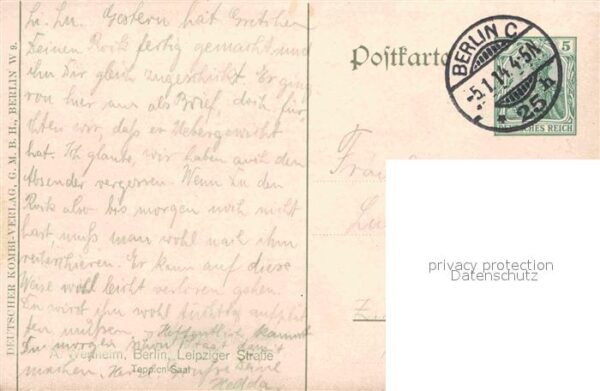 Li. Lu. Gestern hat Gretchen
Deinen Rock fertig gemacht und
ihn Dir gleich zugeschickt. Er ging
von hier aus als Brief, doch für-
chten wir, daß er Uebergewicht
hat. Ich glaube, wir haben auch den
Absender vergessen. Wenn Du den
Rock also bis morgen noch nicht
hast, muß man wohl nach ihm
recherchieren. Er kann auf diese
Weise wohl leicht verloren gehen.
Du wirst ihn wohl tüchtig
müssen. Hoffentlich kannst
Du morgen schon Staat damit
machen. Deine
Hedda.
A. Wertheim, Berlin, Leipziger Straße
Teppich-Saal
DEUTSCHER KOMBI-VERLAG, G. M. B. H., BERLIN W 9.
Postkarte
BERLIN C
-5.1.14.4-5N
* 25 h
5
DEUTSCHES REICH
privacy protection
Datenschutz